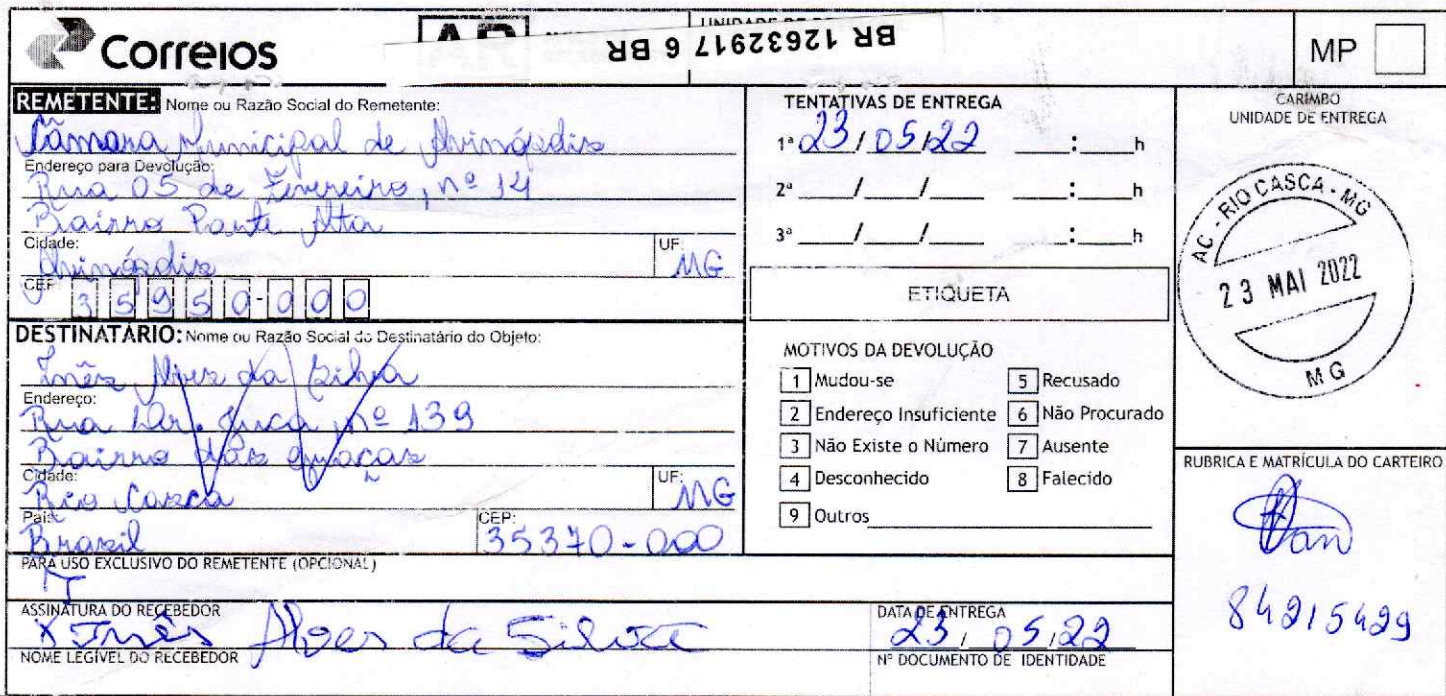 Correios
AR
BR 12632917 6 BR
MP
REMETENTE: Nome ou Razão Social do Remetente:
Câmara Municipal de Alvinópolis
Endereço para Devolução:
Rua 05 de Fevereiro, nº 14
Bairro Ponte Alta
Cidade:
Alvinópolis
UF:
MG
CEP
35950-000
DESTINATÁRIO: Nome ou Razão Social do Destinatário do Objeto:
Inês Alves da Silva
Endereço:
Rua Dr. Juca, nº 139
Bairro dos
Cidade:
Rio Casca
UF:
MG
País:
Brasil
CEP:
35370-000
PARA USO EXCLUSIVO DO REMETENTE (OPCIONAL)
ASSINATURA DO RECEBEDOR
X Inês Alves da Silva
NOME LEGÍVEL DO RECEBEDOR
DATA DE ENTREGA
23/05/22
Nº DOCUMENTO DE IDENTIDADE
TENTATIVAS DE ENTREGA
1ª 23/05/22 ____:____h
2ª ____/____/____ ____:____h
3ª ____/____/____ ____:____h
ETIQUETA
MOTIVOS DA DEVOLUÇÃO
1 Mudou-se
2 Endereço Insuficiente
3 Não Existe o Número
4 Desconhecido
5 Recusado
6 Não Procurado
7 Ausente
8 Falecido
9 Outros
CARIMBO
UNIDADE DE ENTREGA
AC - RIO CASCA - MG
23 MAI 2022
MG
RUBRICA E MATRÍCULA DO CARTEIRO
84215429